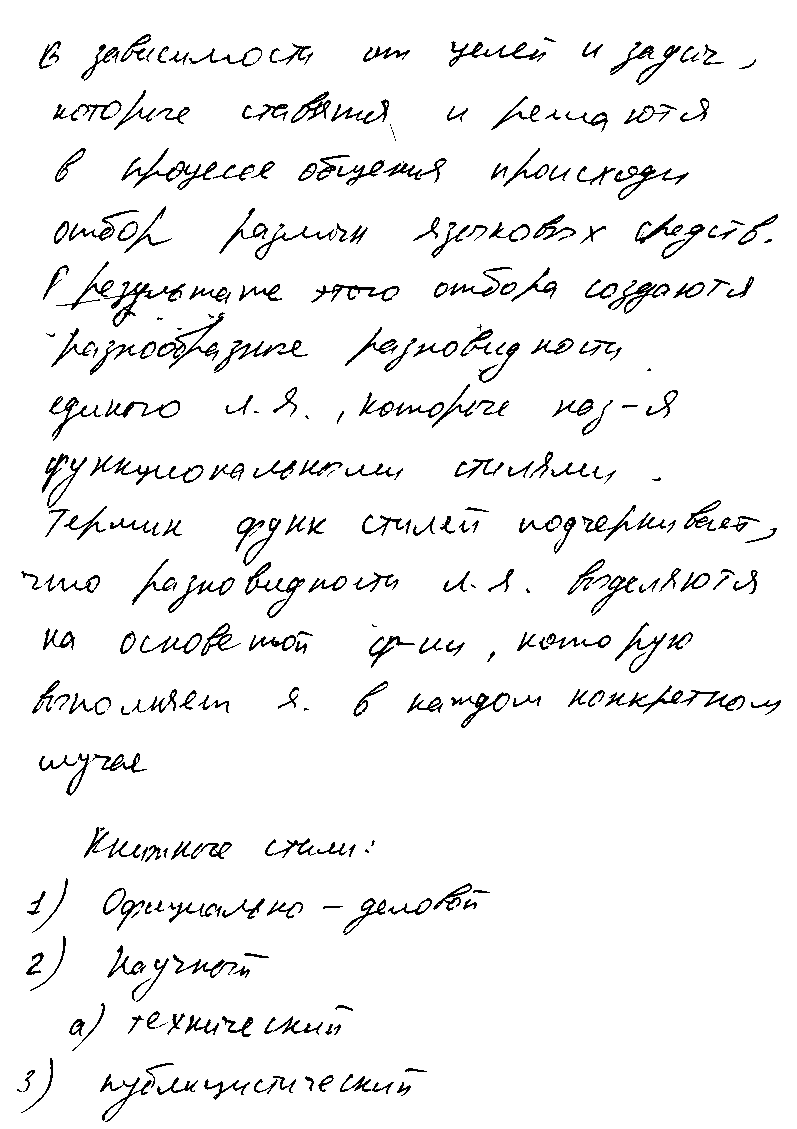 В зависимости от целей и задач,
которые ставятся и решаются
в процессе общения происходи
отбор различн языковых средств.
В результате этого отбора создаются
разнообразные разновидности
единого л.я., которые наз-я
функциональными стилями.
Термин функ стилей подчеркивает,
что разновидности л.я. выделяются
на основе той ф-ии, которую
выполняет я. в каждом конкретном
случае
Книжные стили:
1) Официально-деловой
2) Научный
а) технический
3) публицистический